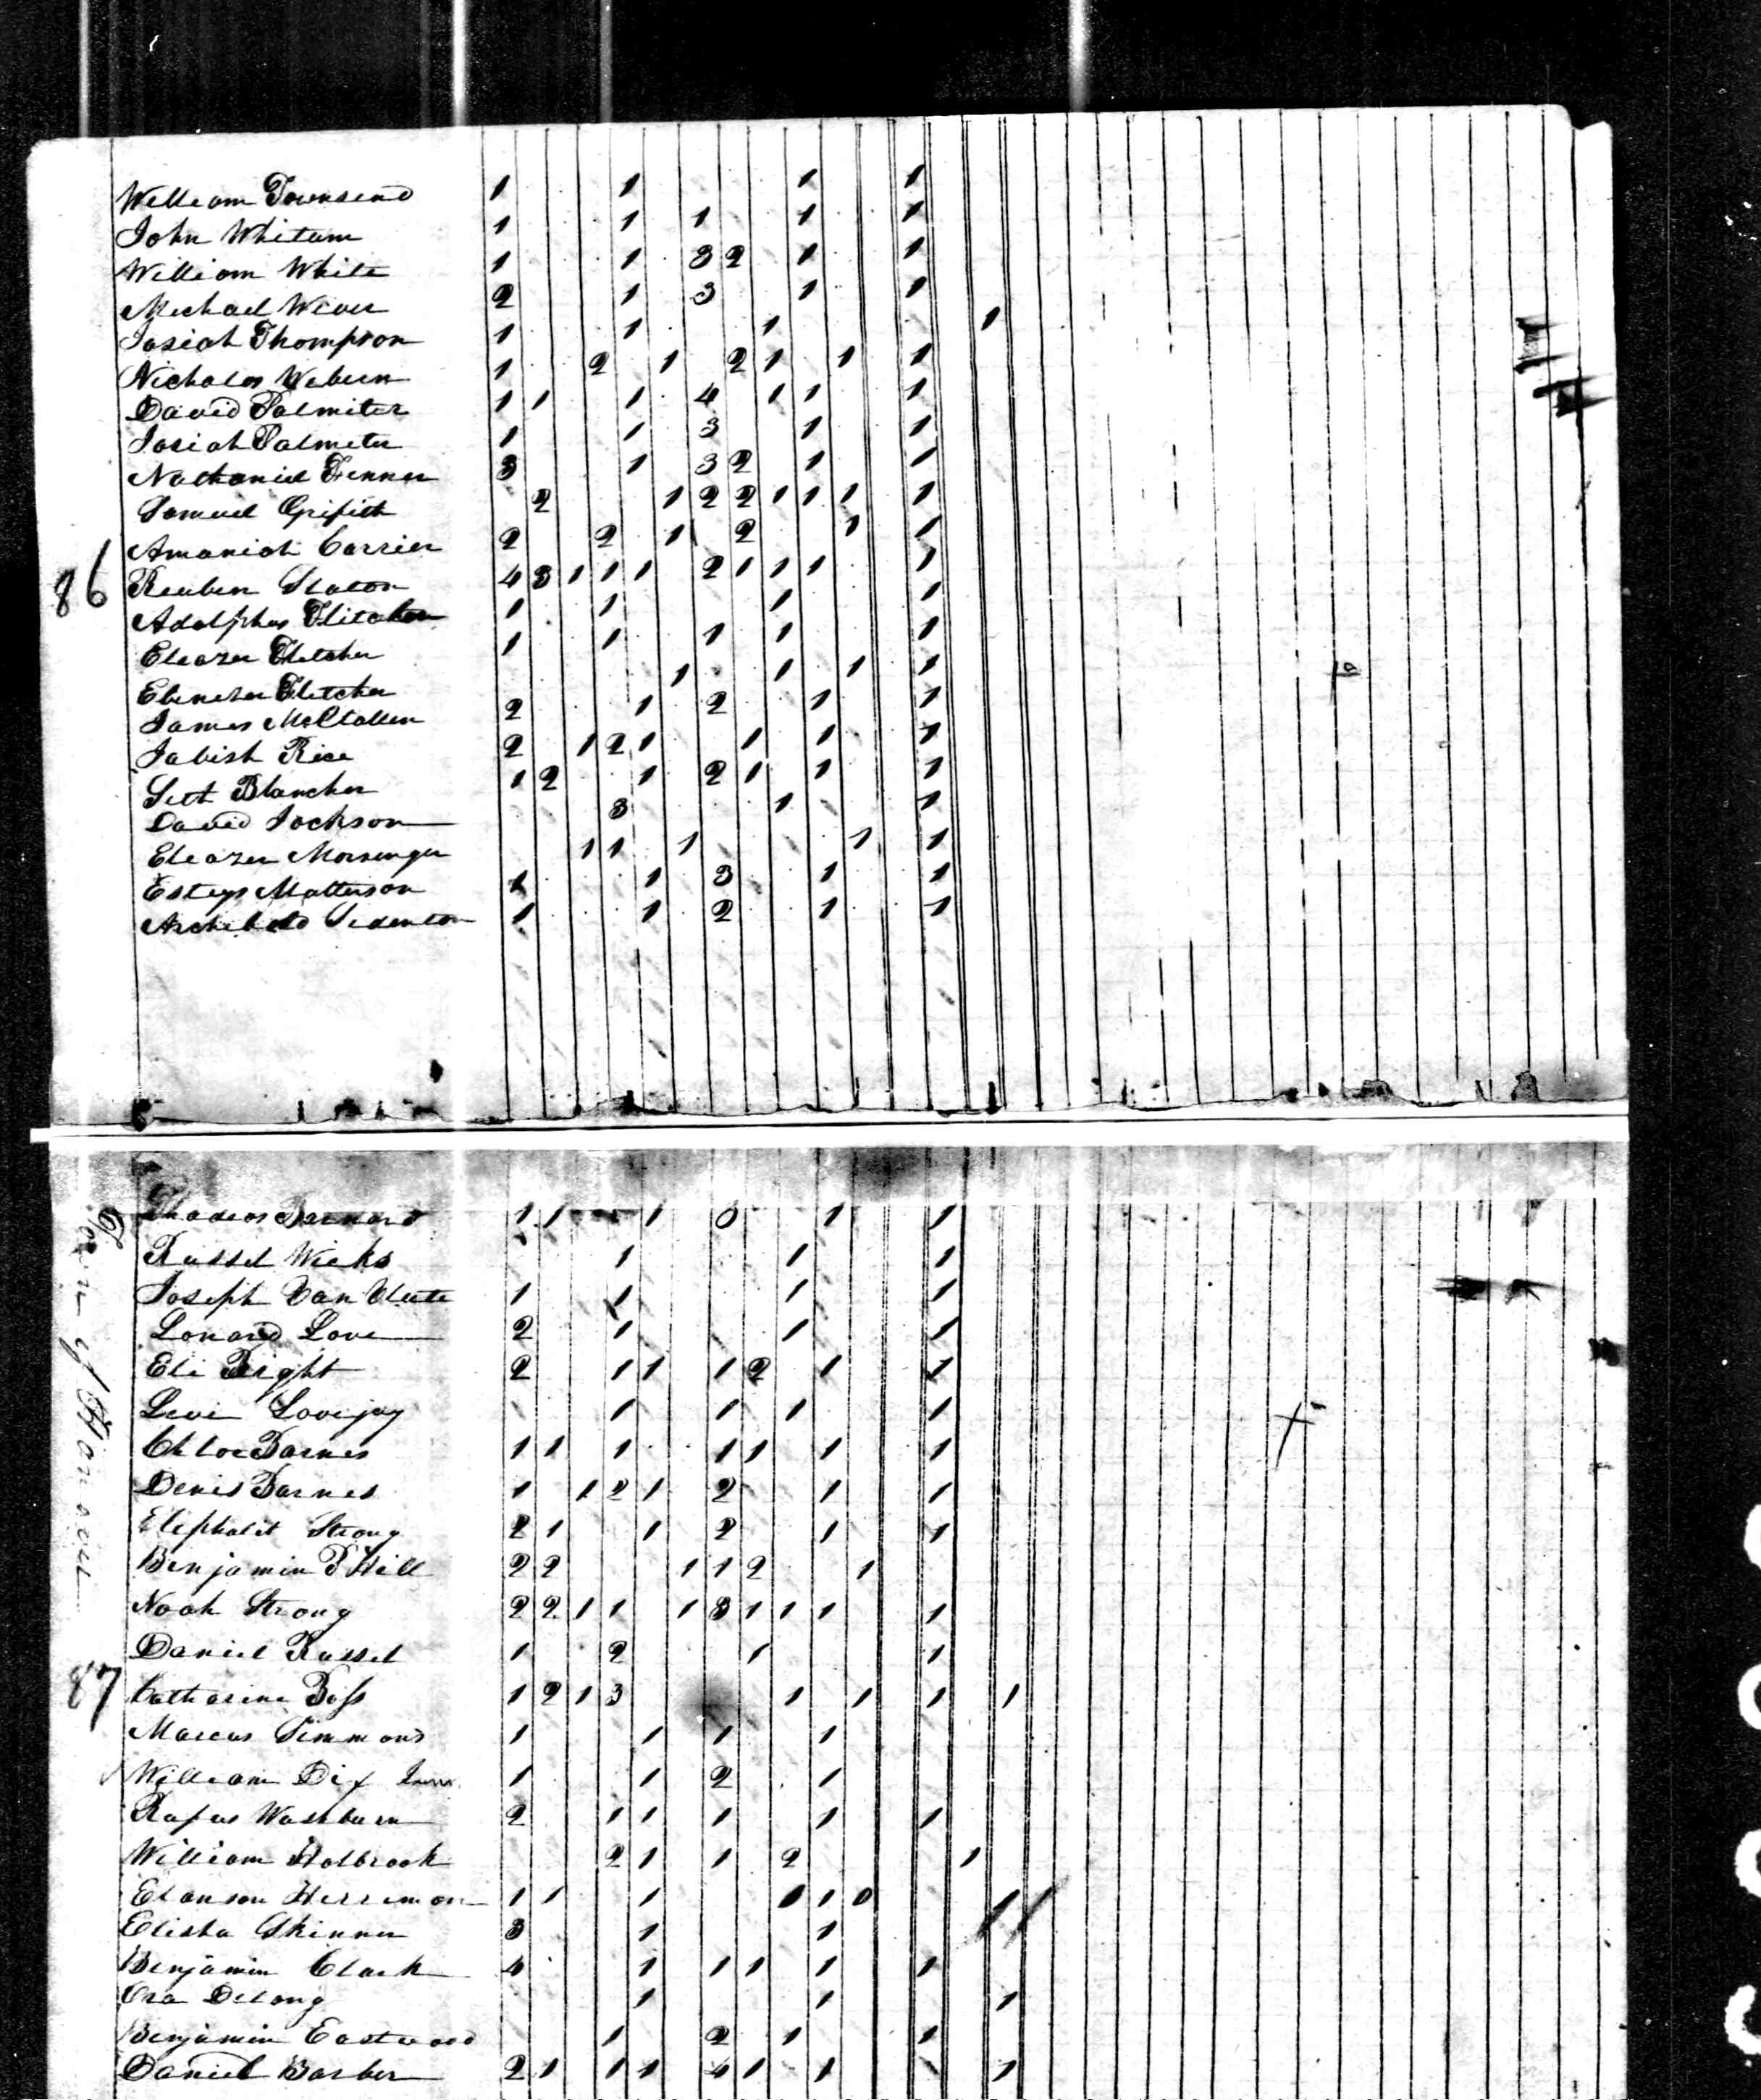 William Townsend 1 1 1 1
John Whitum 1 1 1 1 1
William White 1 1 3 2 1 1
Michael Wever 2 1 3 1 1
Josiah Thompson 1 1 1 1
Nicholas Weburn 1 2 1 2 1 1 1
David Palmiter 1 1 1 4 1 1 1
Josiah Palmeter 1 1 3 1 1
Nathaniel Fenner 3 1 3 2 1 1
Samuel Grifith 2 1 2 2 1 1 1 1
Amaniah Carrier 2 2 1 2 1 1
86 Reuben Slaton 4 3 1 1 1 2 1 1 1 1
Adolphus Flitcher 1 1 1 1
Eleazer Fletcher 1 1 1 1 1
Ebenezer Fletcher 1 1 1 1
James McClallen 2 1 2 1 1
Jabish Rice 2 1 2 1 1 1 1
Seth Blancher 1 2 1 2 1 1 1
David Jackson 3 1 1
Eleazer Morsenger 1 1 1 1 1
Esteys Matterson 1 1 3 1 1
Archibald 1 1 2 1 1
Thadeos Barnard 1 1 1 3 1 1
Russel Wicks 1 1 1
Joseph Van Vleete 1 1 1 1
Lonard Love 2 1 1 1
Eli Bright 2 1 1 1 2 1 1
Levi Lovejoy 1 1 1 1
Chloe Barnes 1 1 1 1 1 1 1
Denis Barnes 1 1 2 1 2 1 1
Eliphalit Strong 2 1 1 2 1 1
Benjamin P Hill 2 2 1 1 2 1
Noah Strong 2 2 1 1 1 3 1 1 1 1
Daniel Russel 1 2 1 1
87 Catharine Bass 1 2 1 3 1 1 1 1
Marcus Simmons 1 1 1 1
William Dix Junr 1 1 2 1
Rufus Washburn 2 1 1 1 1 1
William Holbrook 2 1 1 2 1
Elanson Herremon 1 1 1 0 1 0 1
Elisha Skinner 3 1 1
Benjamin Clark 4 1 1 1 1 1
Ora Delong 1 1 1
Benjamin Eastwood 1 2 1 1
Daniel Barber 2 1 1 1 4 1 1 1
Town of